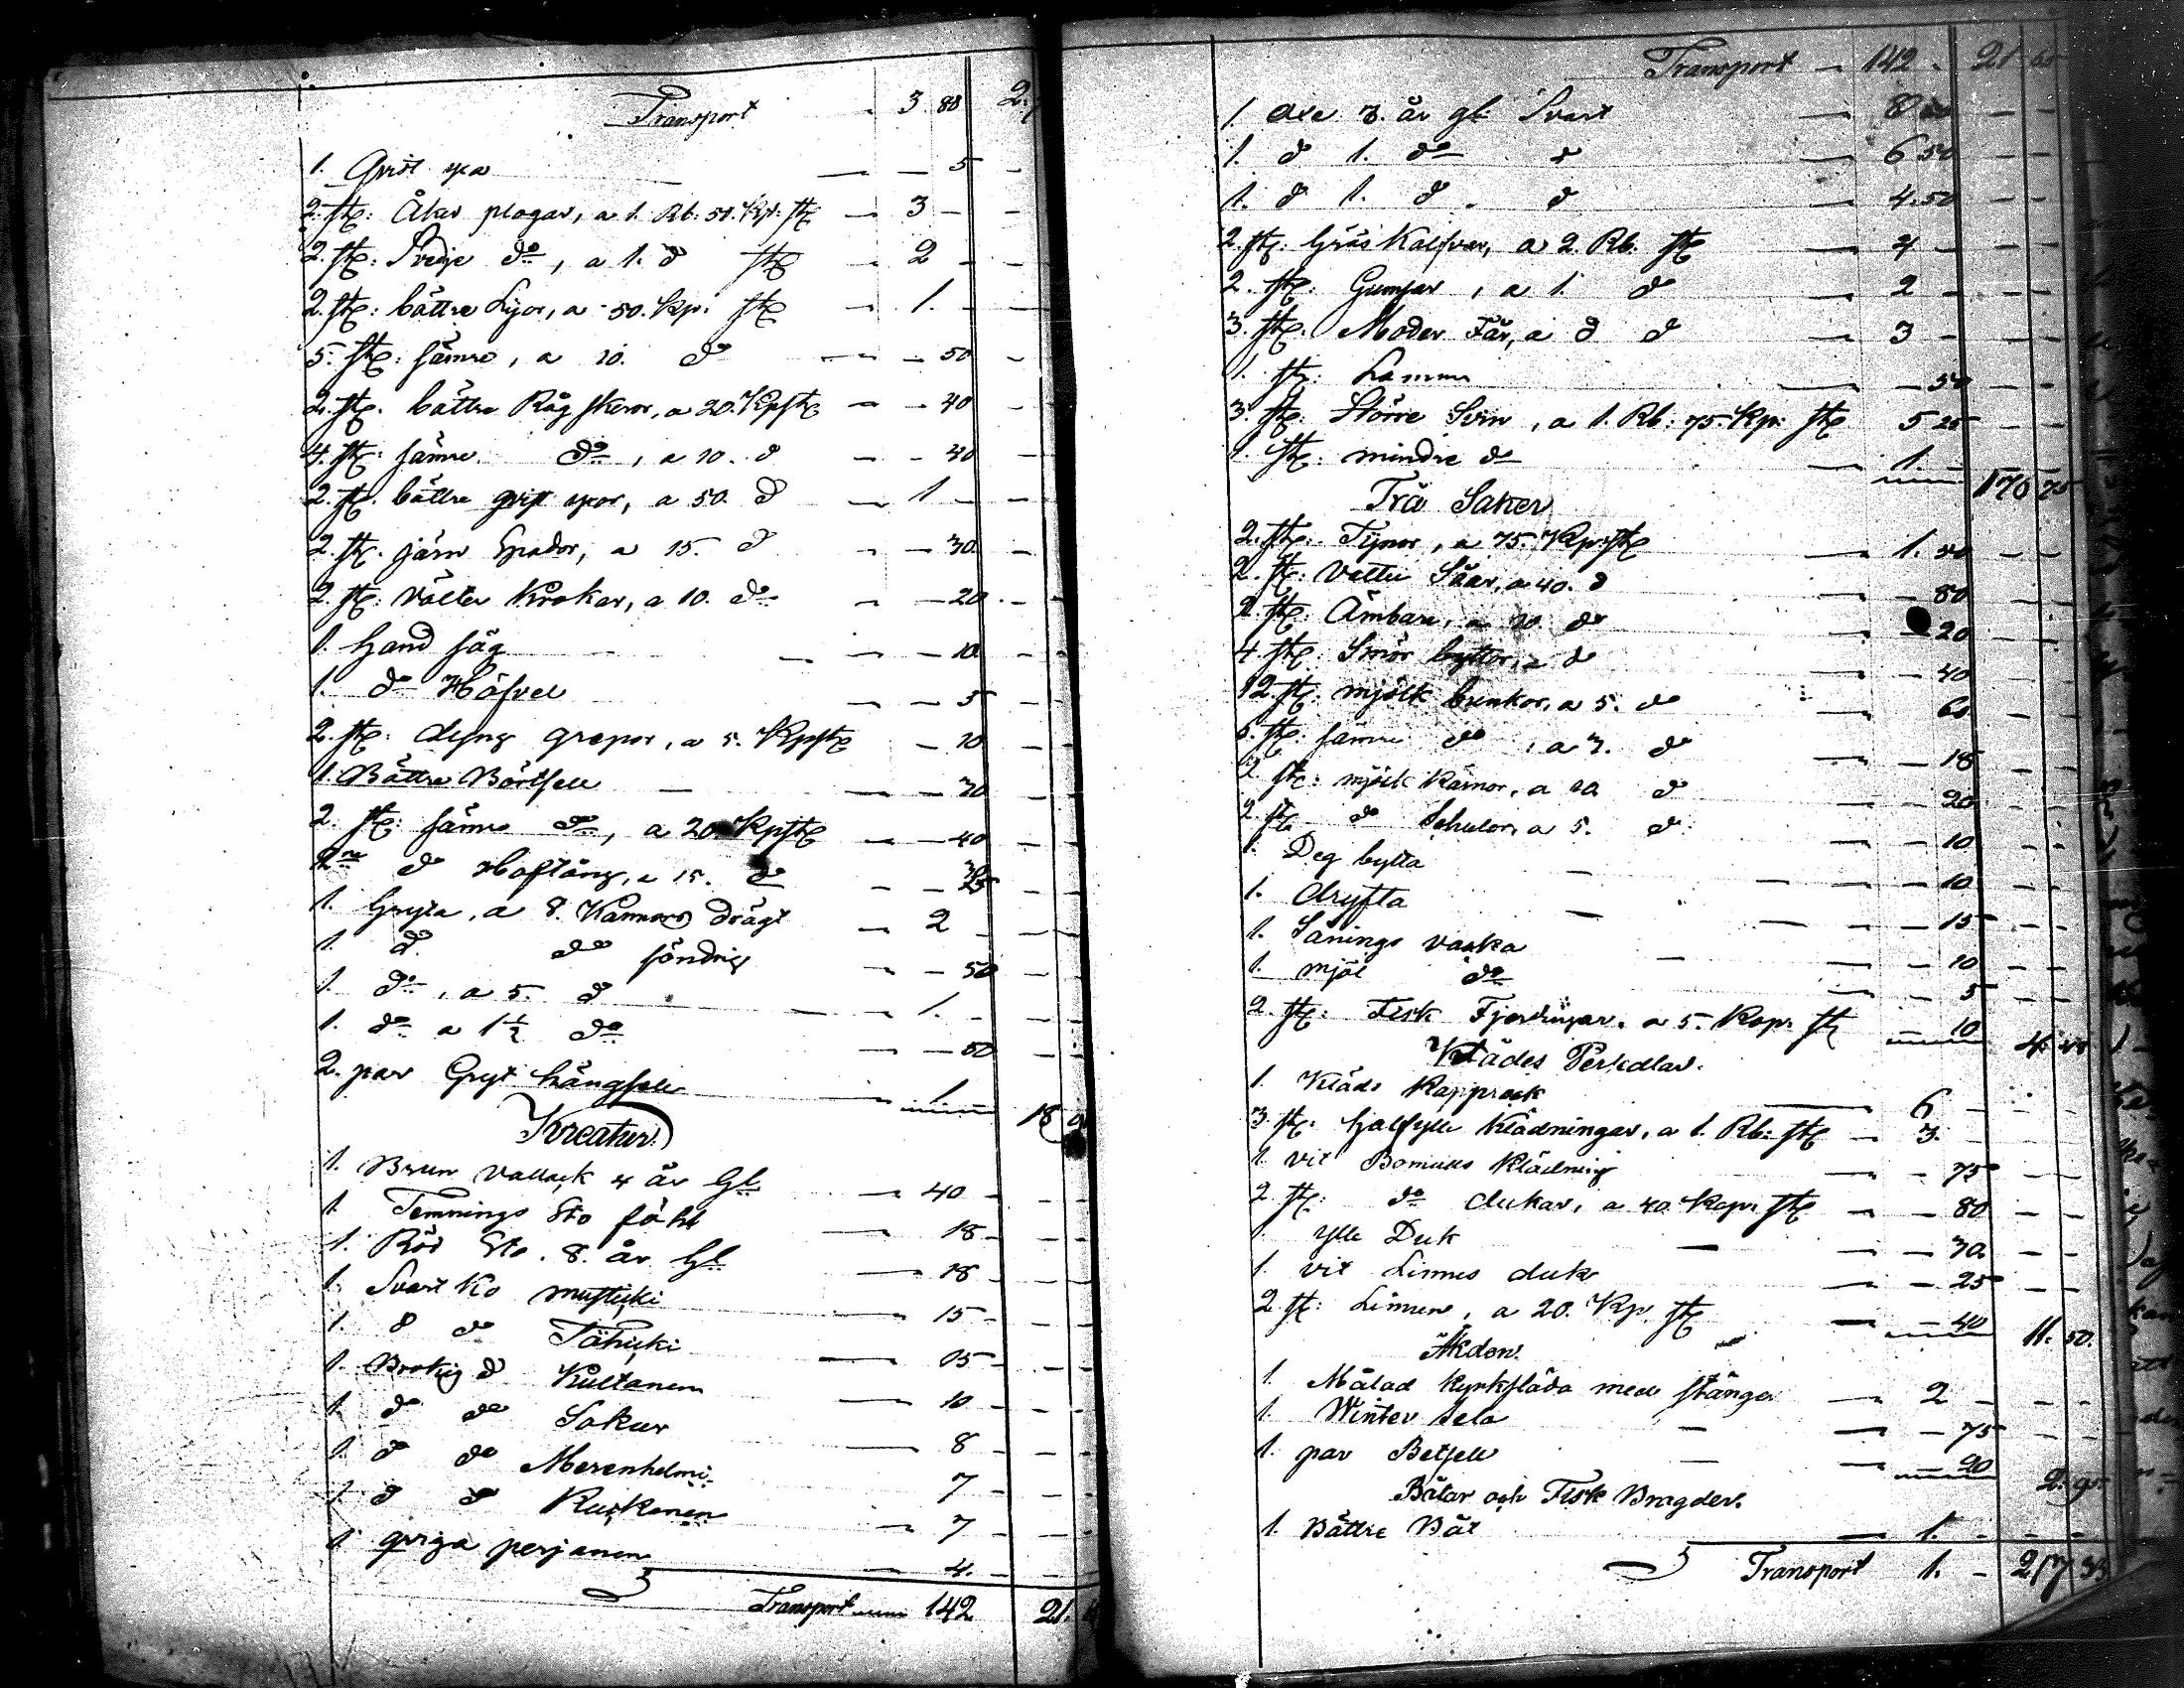 Transport — 3 88
1. Qvist yxa — — 5
2. st: Åker plogar, a 1. Rb: 50. Kp: st — 3 —
2. st: Svedje do, a 1. d st — 2 —
2. st: bättre Lijor, a 50. Kp: st — 1. —
5. st: sämre, a 10. d — — 50
2. st. bättre Råg skeror, a 20. Kp st — — 40
4. st: sämre do, a 10. d — — 40
2. st. bättre yxor, a 50. d — 1 —
2. st. järn Spador, a 15. d — — 30
2. st: Krokar, a 10. do — — 20
1. hand såg — — 10
1. do Höfvel — — 5
2. st: dyng grepor, a 5. Kp st — 10
1. Bättre Bördsell — — 30
2. st: sämre do, a 20. Kp st — — 40
2ne d Hoftång, a 15. do — —
1. Gryta, a 8. Kannors drägt — 2 —
1. d do söndrig — — 50
1. do, a 5. d — 1. —
1. do a 1½ do — — 50
2. par Gryt hängslen — 1 18
Kreatur
1. Brun vallack 4 år Gl — 40 —
1. Temnings Sto fåhl — 18 —
1. Röd Sto. 8. år Gl — 18 —
1. Svart Ko mustiki — 15 —
1. d do Tähicki — 15 —
1. Brokig d Kultanen — 10 —
1. d do Sokur — 8 —
1. d do Merenhelmi — 7 —
1. d d Ruskenen — 7 —
1. qviga perjanen — 4. —
Transport 142 21.
Transport — 142. 21 65
1. Oxe 3. år gl Svart — 8
1. d 1. do d — 6 50
1. d 1. d. d — 4. 50
2. st. Gräs Kalfvar, a 2. Rb. st — 4 —
2. st. Gumsar, a 1. d — 2 —
3. st. Moder Får, a d d — 3 —
1. st: Lamm — — 50
3. st. Större Svin, a 1. Rb: 75. Kp: st 5 25
1. st: mindre do — 1. — 170 75
Trä Saker
2. st: Tynor, a 75. Kp: st — 1. 50
2. st: Vatten Såar, a 40. d — — 80
2. st: Ämbare, a 10. do — — 20
4. st: Smör byttor, a d — — 40
12. st: mjölk bunkor, a 5. do — — 60
6. st: sämre do, a 3. do — — 18
2 st: mjölk Kärnor, a 10. d — — 20
2 st do a 5. d — — 10
1. Deg bytta — — 10
1. dryfta — — 15
1. Sånings vacka — — 10
1. mjöl do — — 5
2. st: Fisk Fjerdingar. a 5. Kop: st — 10 4. 48
Klädes Persedlar.
1. Kläds Kapprock — 6 —
3 st: halfylle Klädningar, a 1. Rb: st — 3. —
1 vit Bomulls Klädning — — 75
2 st: do dukar, a 40. Kop: st — — 80
1 ylle Duk — — 30
1. vit Linnes duk — — 25
2 st: Linnen, a 20. Kp. st — — 40 11. 50.
Åkdon.
1. Målad Kyrkslāda med stänger — 2 —
1. Winter Sela — — 75
1. par Betsell — — 20 2. 95
Båtar och Fisk Bragder.
1. Bättre Båt — 1. —
Transport 1. — 217 33